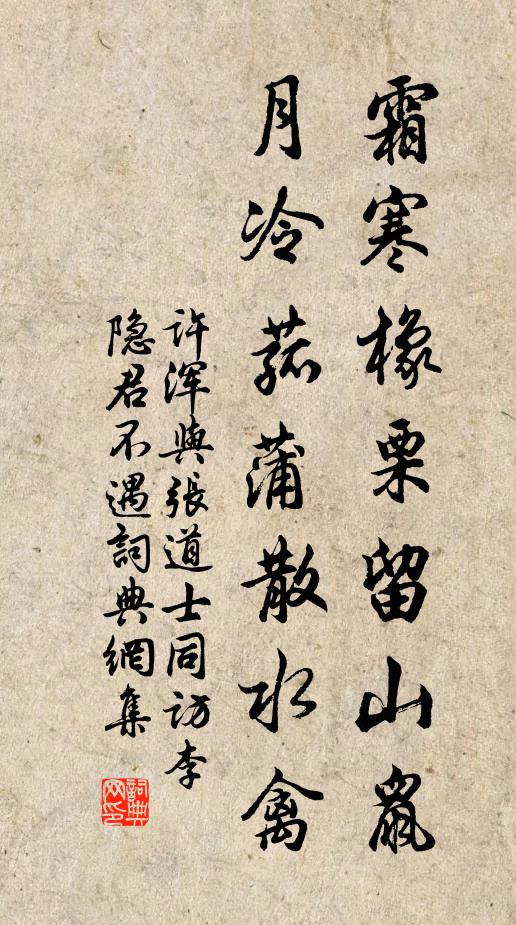 霜寒橡栗留山鼠
月冷菰蒲散水禽
许浑與張道士同访李
隐君不遇詞典網集
詞典网印